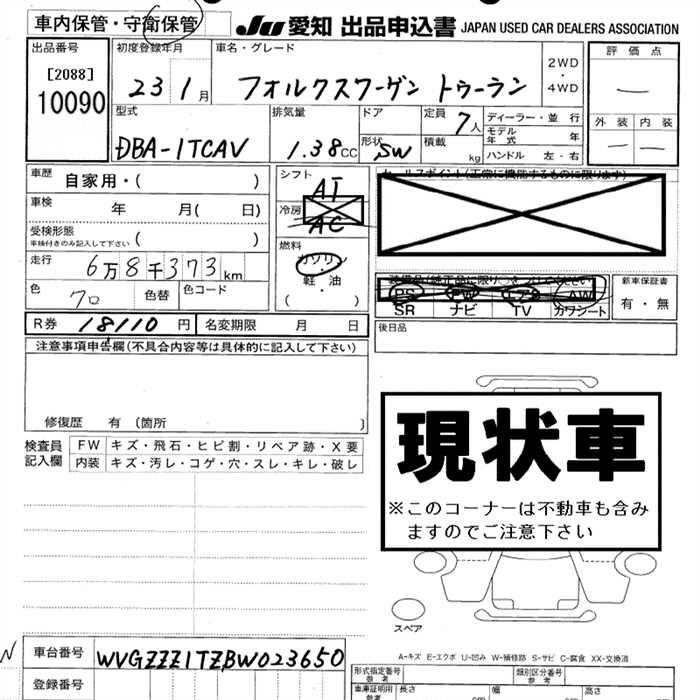 車内保管・守衛保管 JU 愛知 出品申込書 JAPAN USED CAR DEALERS ASSOCIATION
出品番号 初度登録年月 車名・グレード 2WD・4WD 評価点
[2088] 23 1月 フォルクスワーゲン トゥーラン —
10090
型式 排気量 ドア 定員 7人 ディーラー・並行 外装 内装
DBA-1TCAV 1.38cc 形状 SW 積載 kg モデル年式 年 — —
ハンドル 左・右
車歴 自家用・( ) シフト AT セールスポイント(正常に機能するものに限ります)
車検 年 月( 日) 冷房 AC
受検形態 車検付きのみ記入して下さい ( ) 燃料 ガソリン
走行 6万8千373km 軽・油
色 クロ 色替 色コード ・( ) PS PW エアB AW 新車保証書
SR ナビ TV カワシート 有・無
R券 18110円 名変期限 月 日 後日品
注意事項申告欄(不具合内容等は具体的に記入して下さい)
修復歴 有(箇所 )
現状車
※このコーナーは不動車も含み
ますのでご注意下さい
検査員記入欄 FW キズ・飛石・ヒビ割・リペア跡・X要
内装 キズ・汚レ・コゲ・穴・スレ・キレ・破レ
スペア
A-キズ E-エクボ U-凹み W-補修跡 S-サビ C-腐食 XX-交換済
車台番号 WVGZZZ1TZBW023650 形式指定番号 参考 類別区分番号 参考
登録番号 車庫証明用 参考 長さ 幅 高さ